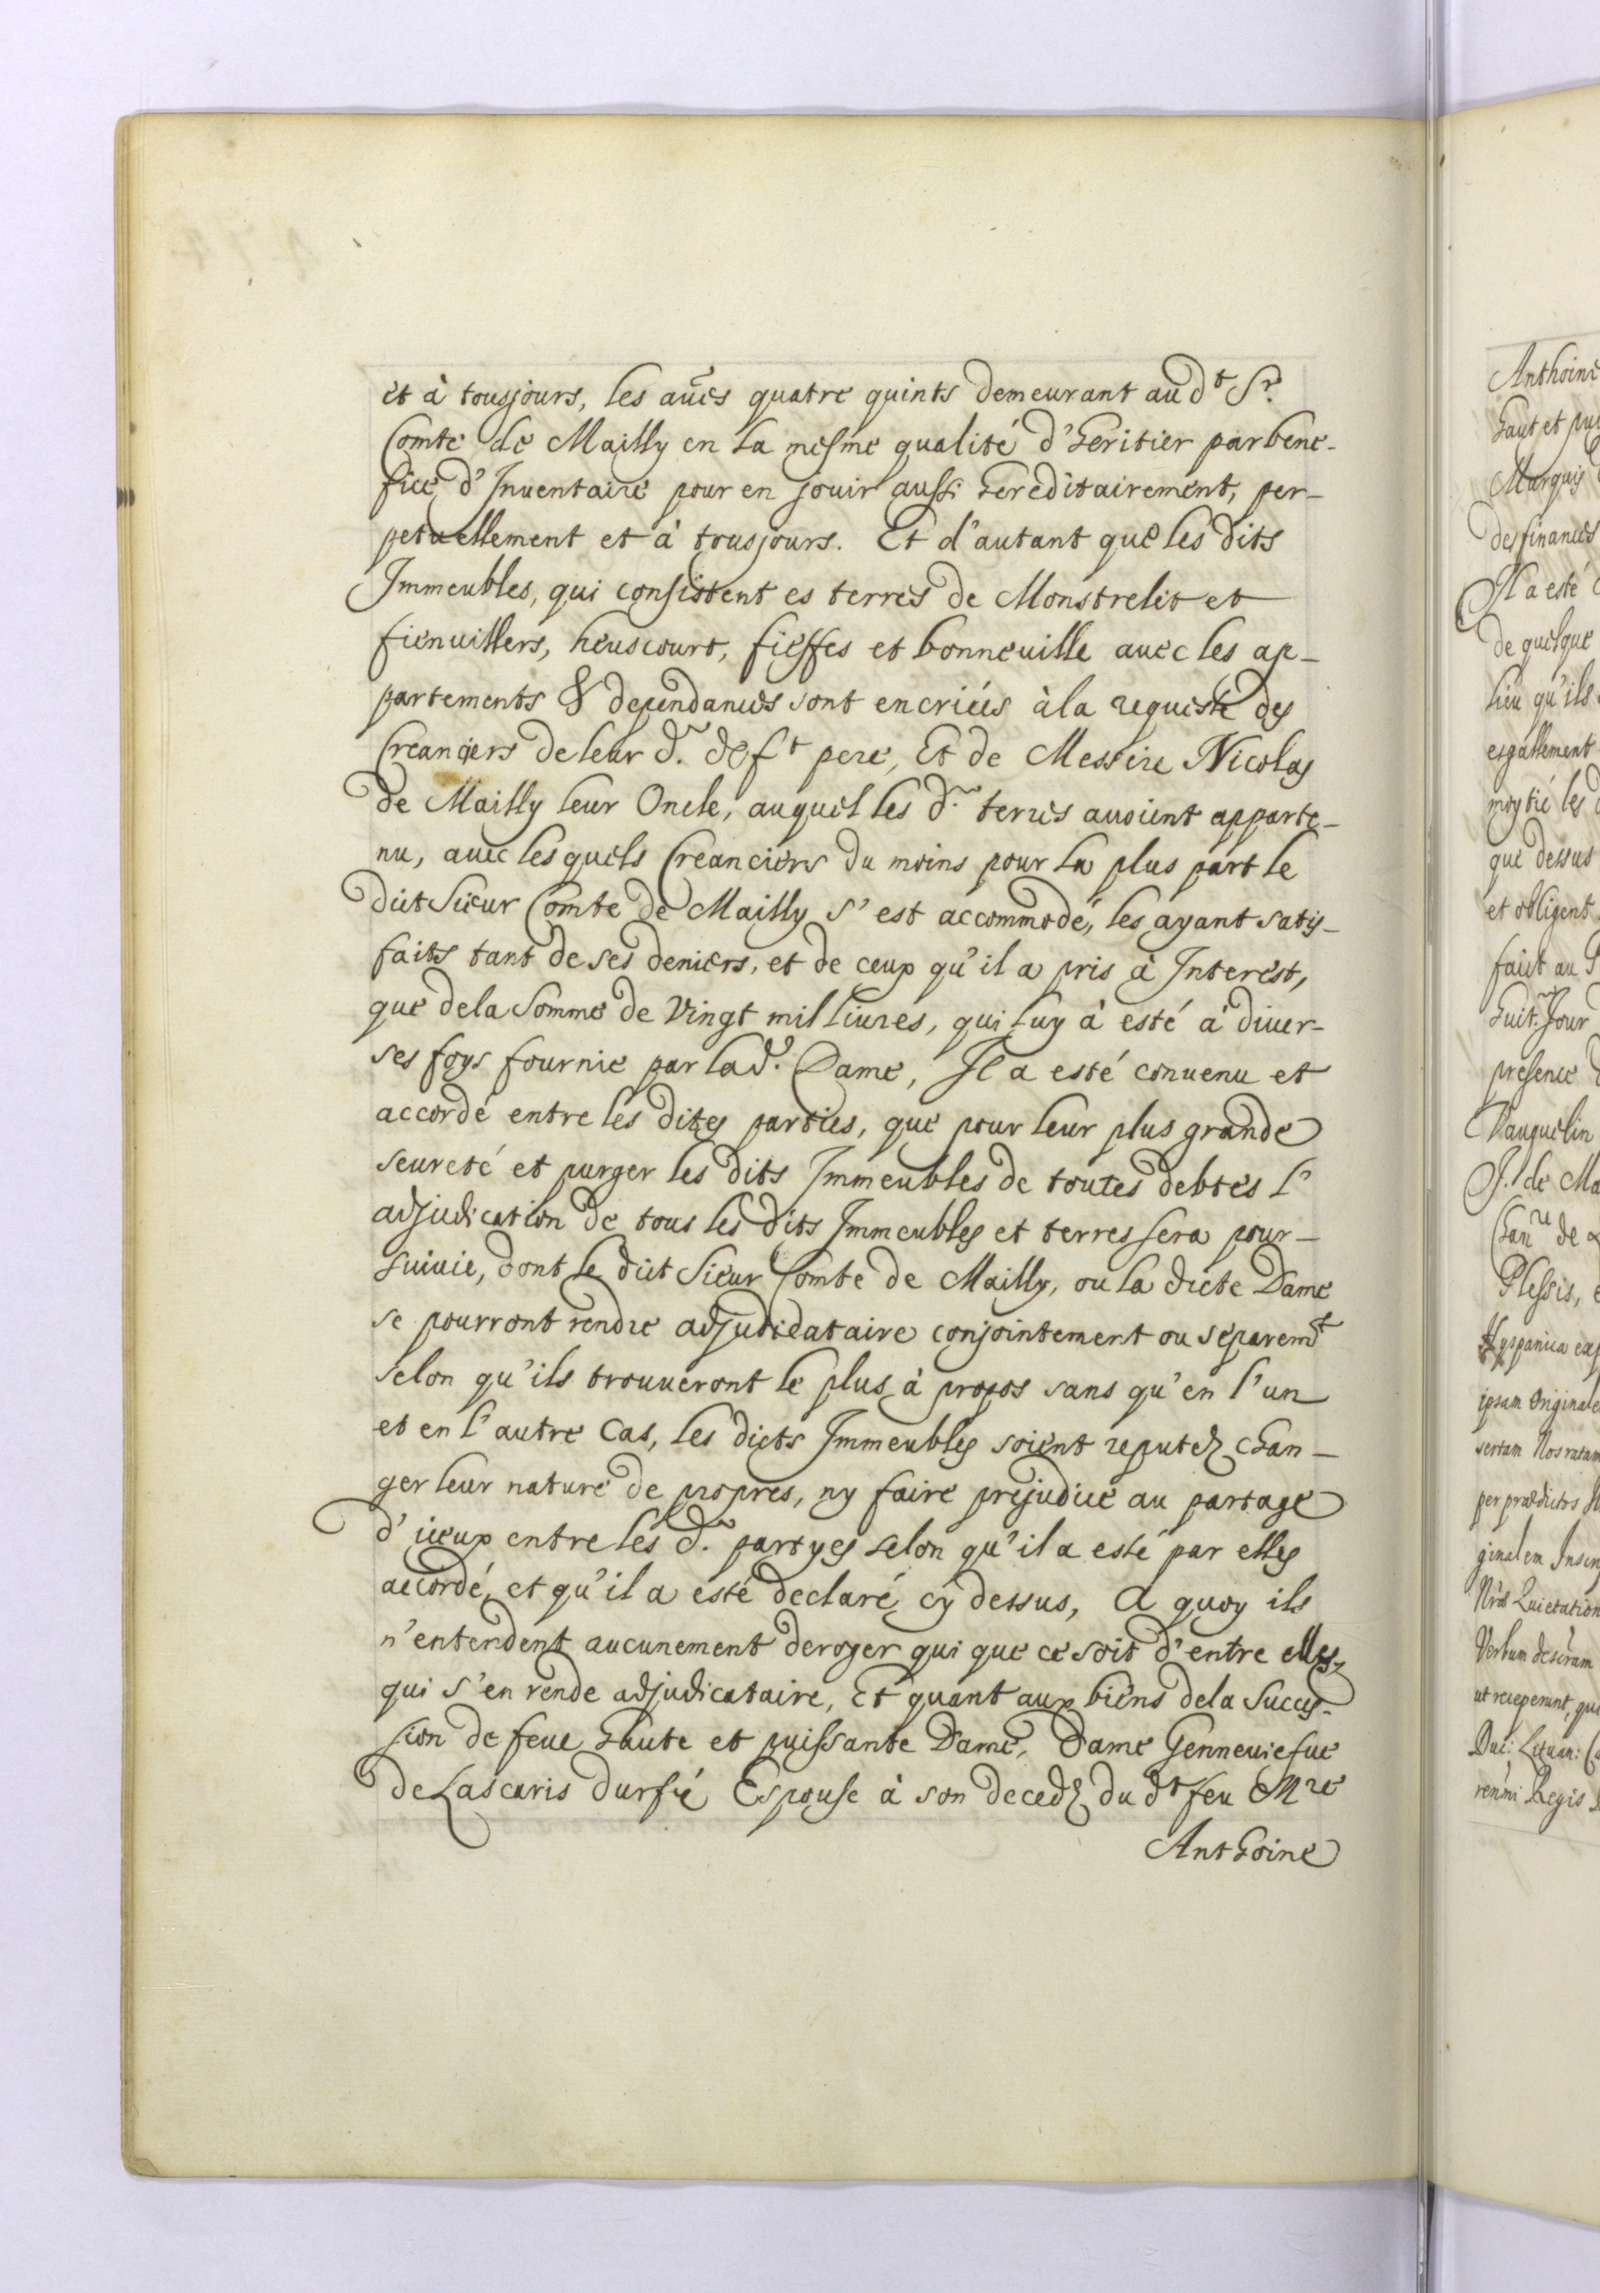 et à tousjours, les au͠es quatre quints demeurant au dt Sr.
Comte de Mailly en la mesme qualité d'heritier par bene-
fice d'Inuentaire pour en jouir aussi hereditairement, per-
petuellement et à tousjours. Et d'autant que les dits
Immeubles, qui consistent es terres de Monstrelet et
fienuillers, heuscourt, fieffes et bonneuille auec les ap-
partements & dependances sont encriées à la requeste des
Creanciers de leur d. deft pere, Et de Messire Nicolas
de Mailly leur Oncle, auquel les d. terres auoient apparte-
nu, auec lesquels Creanciers du moins pour la plus part le
dict Sieur Comte de Mailly s'est accommodé, les ayant satis-
faits tant de ses deniers, et de ceux qu'il a pris à Interest,
que de la somme de Vingt mil liures, qui luy à esté à diuer-
ses foys fournie par lad. Dame, Il a esté conuenu et
accordé entre les dites parties, que pour leur plus grande
seureté et purger les dits Immeubles de toutes debtes l'
adjudication de tous les dits Immeubles et terres sera pour-
suiuie, dont le dict Sieur Comte de Mailly, ou la dicte Dame
se pourront rendre adjudicataire conjointement ou separemt
selon qu'ils trouueront le plus à propos sans qu'en l'un
et en l'autre Cas, les dicts Immeubles soient reputez chan-
ger leur nature de propres, ny faire prejudice au partage
d'iceux entre les d. partyes selon qu'il a esté par elles
accordé, et qu'il a esté declaré cy dessus, A quoy ils
n'entendent aucunement deroger qui que ce soit d'entre elles,
qui s'en rende adjudicataire, Et quant aux biens de la Succes-
sion de feue haute et puissante Dame, Dame Genneuiefue
de Lascaris durfé Espouse à son decedz du dt feu Mre
Anthoine
Anthoine
haut et pui
Marquis
des finances
Il a esté
de quelque
lieu qu'ils
esgallement
moytié les
que dessus
et obligent
faict au
huit. Jour
presence
Vauquelin
J. de Ma
Chanre de
Plessis,
Hyspanica
ipsam Originale
sertam Nos ratam
per prædictos
ginalem Inser
Nras Quietation
Verbum
ut receperunt, qu
Duc: Lituan:
renmi Regis